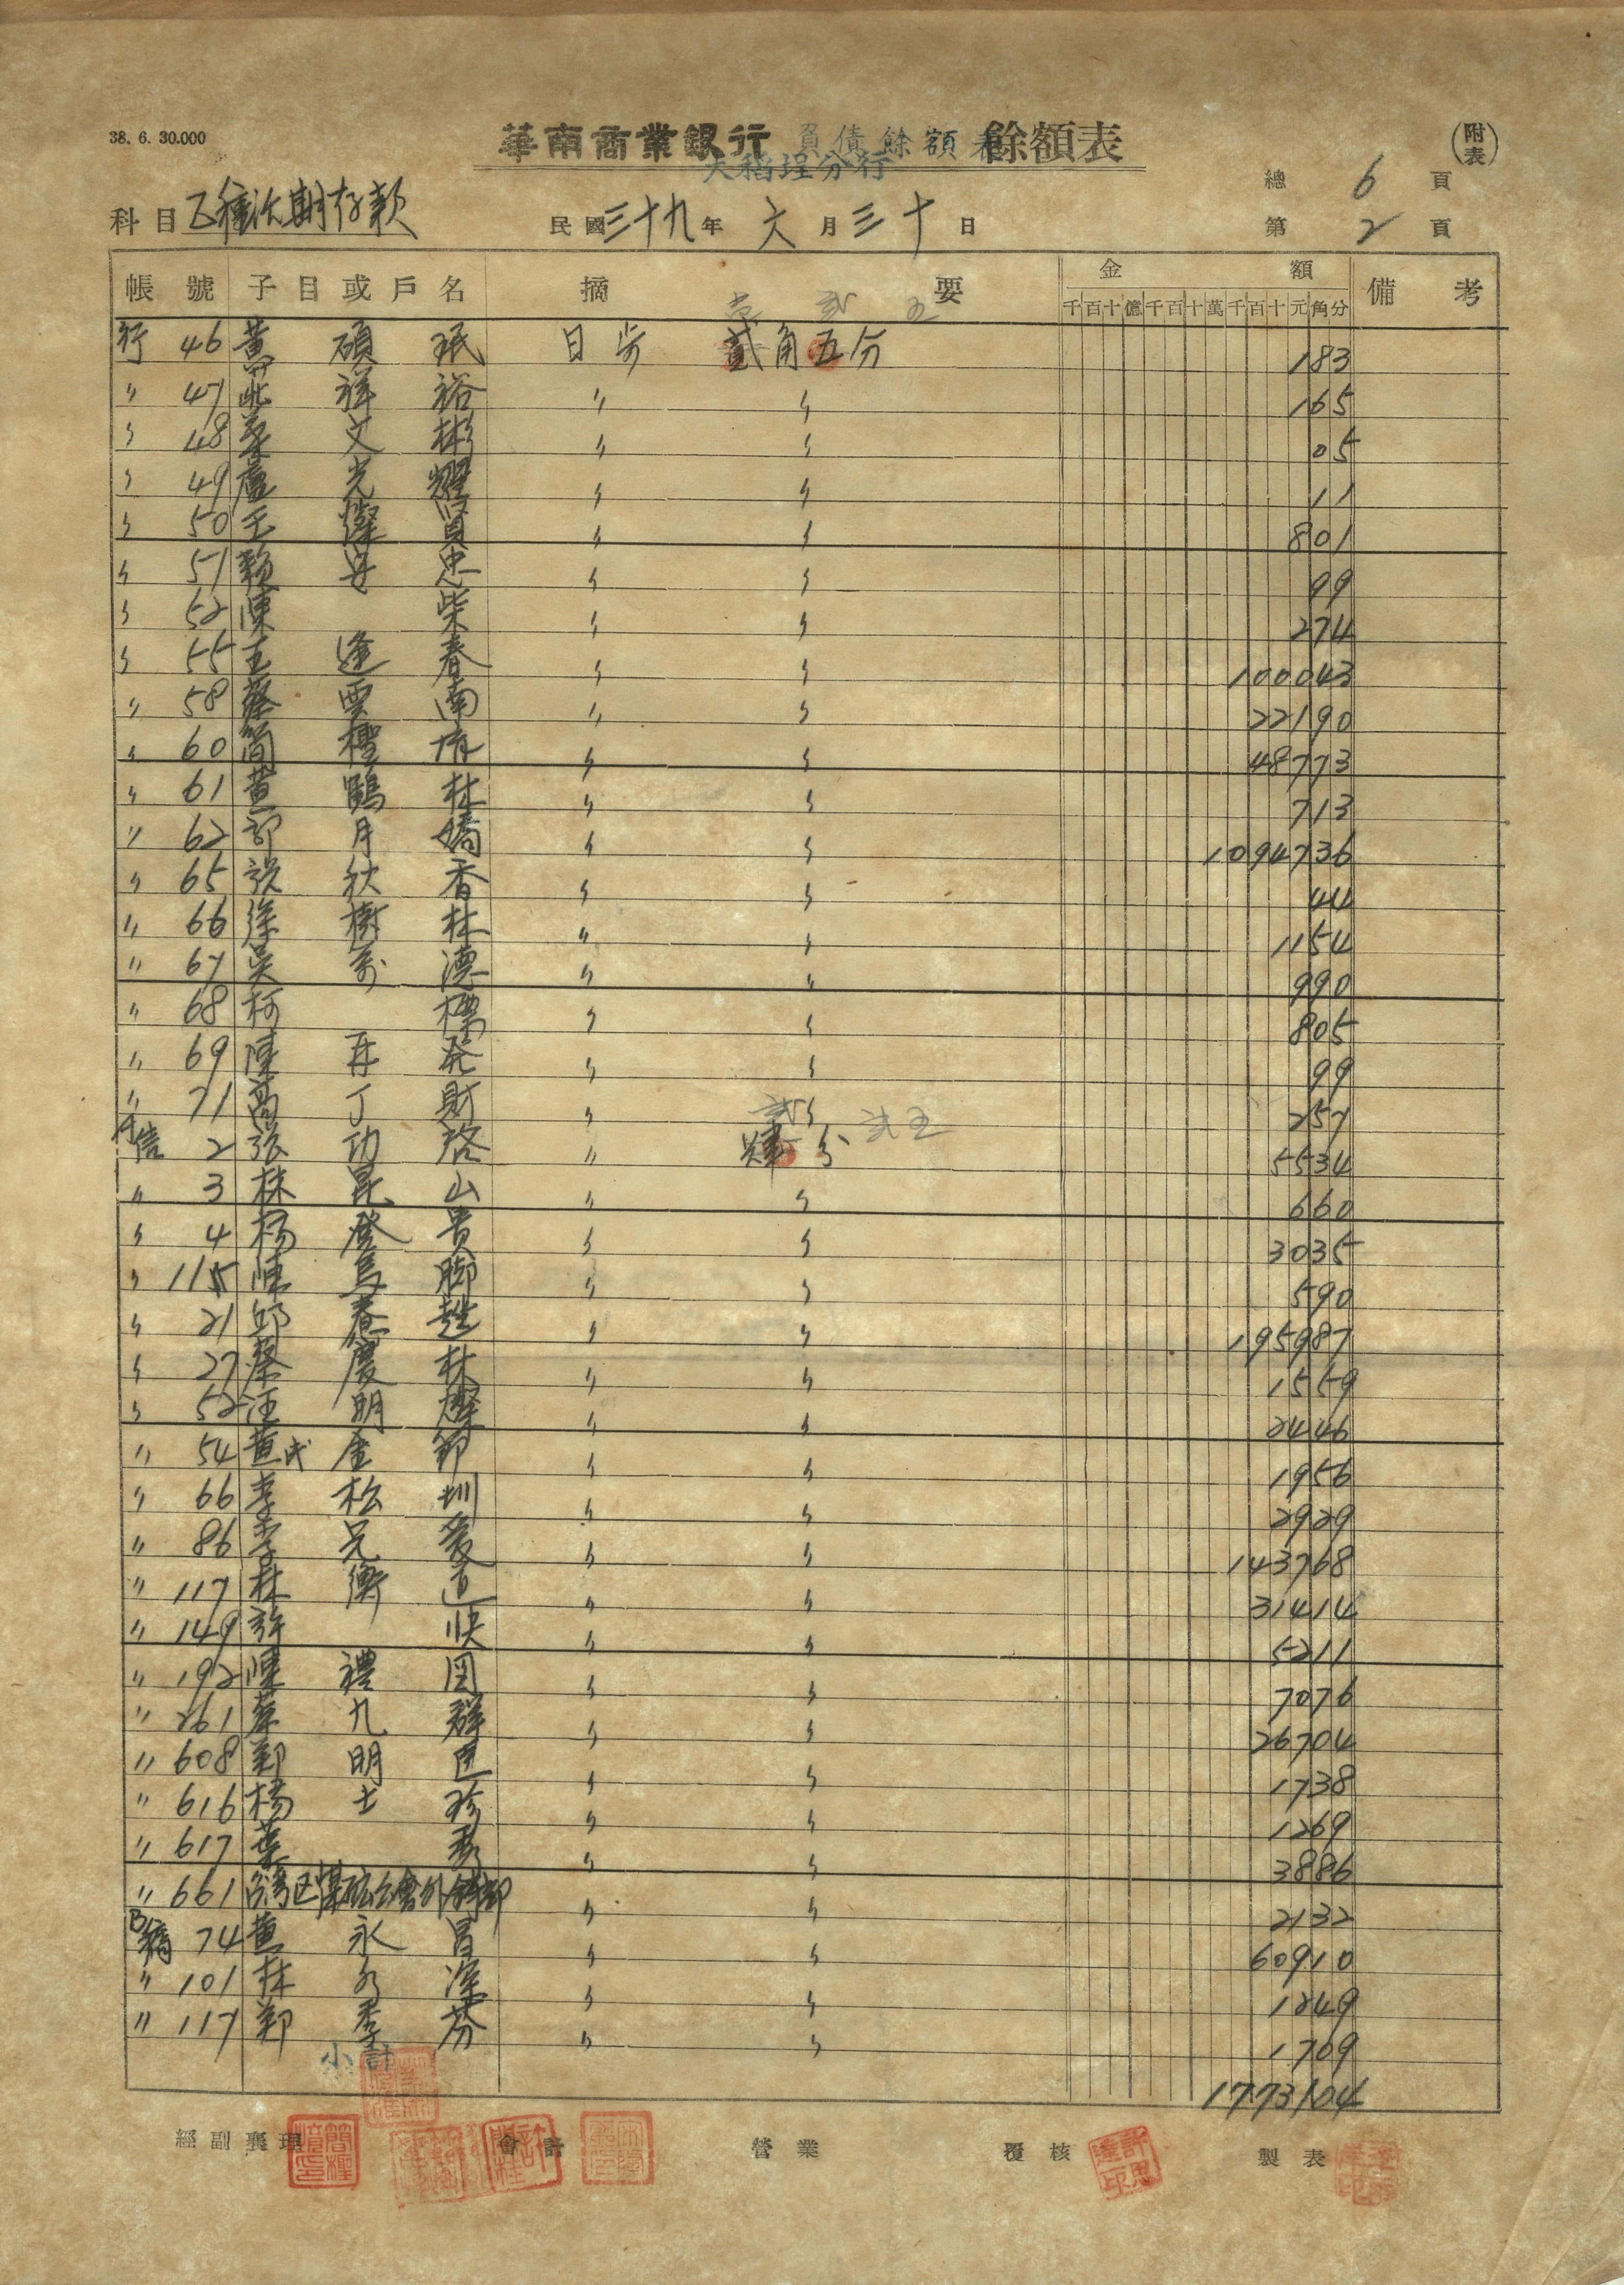 38. 6. 30.000
華南商業銀行 負債餘額表 餘額表
大稻埕分行
(附表)
總 6 頁
科目 乙種活期存款 民國 三十九 年 六 月 三十 日 第 2 頁
帳號 子目或戶名 摘要 金額 備考
千百十億千百十萬千百十元角分
行 46 黃碩珉 日步 貳角五分 183
〃 47 祥裕 〃 〃 165
〃 48 文彬 〃 〃 05
〃 49 盧光耀 〃 〃 11
〃 50 王燦賢 〃 〃 801
〃 51 賴安忠 〃 〃 99
〃 52 陳柴 〃 〃 274
〃 55 王逢春 〃 〃 100043
〃 58 蔡雲南 〃 〃 22190
〃 60 簡檉堉 〃 〃 48773
〃 61 黃鶴林 〃 〃 713
〃 62 郭月嬌 〃 〃 1094736
〃 65 張秋香 〃 〃 44
〃 66 徐樹林 〃 〃 1154
〃 67 吳萬德 〃 〃 990
〃 68 柯標 〃 〃 805
〃 69 陳再發 〃 〃 99
〃 71 高丁財 〃 〃 257
信 2 張功啓 〃 肆分 5534
〃 3 林昆山 〃 〃 660
〃 4 楊登貴 〃 〃 3035
〃 115 陳馬腳 〃 〃 590
〃 21 邱春趖 〃 〃 195987
〃 27 蔡慶林 〃 〃 1559
〃 52 汪明燦 〃 〃 2446
〃 54 黃氏金節 〃 〃 1956
〃 66 李松圳 〃 〃 2929
〃 86 李兄愛 〃 〃 143768
〃 117 林衡道 〃 〃 31414
〃 149 許快 〃 〃 5211
〃 192 陳禮固 〃 〃 7076
〃 261 蔡九群 〃 〃 26704
〃 608 鄭明 〃 〃 1738
〃 616 楊士珍 〃 〃 1269
〃 617 葉 〃 〃 3886
〃 661 台灣區煤砿公會外銷部 〃 〃 2132
74 黃永昌 〃 〃 60910
〃 101 林水深 〃 〃 1249
〃 117 鄭季芬 〃 〃 1769
小計 1773104
經副襄理 會計 營業 覆核 製表